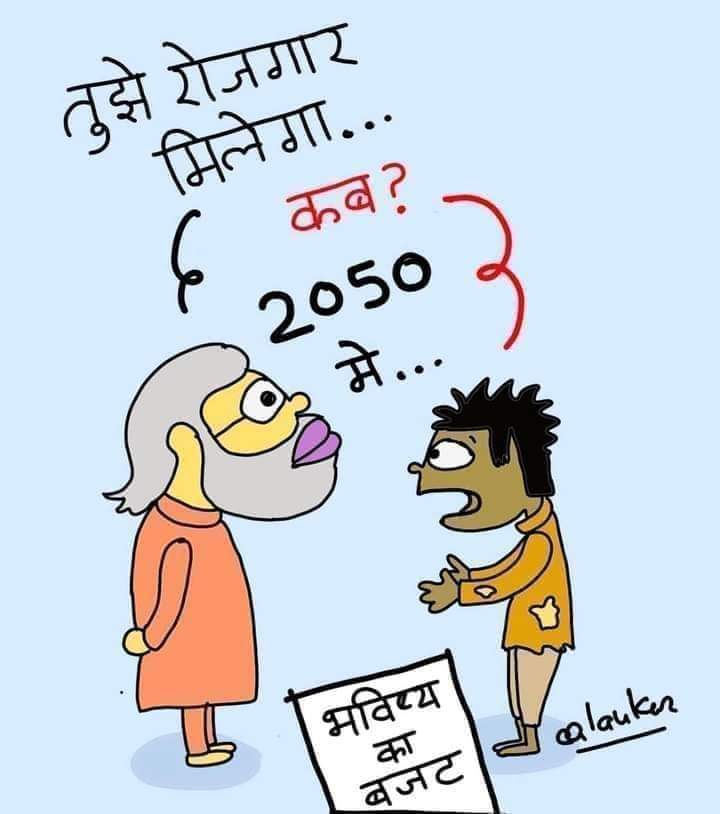 तुझे रोजगार
मिलेगा...
कब?
2050
मे...
भविष्य
का
बजट
@lauken